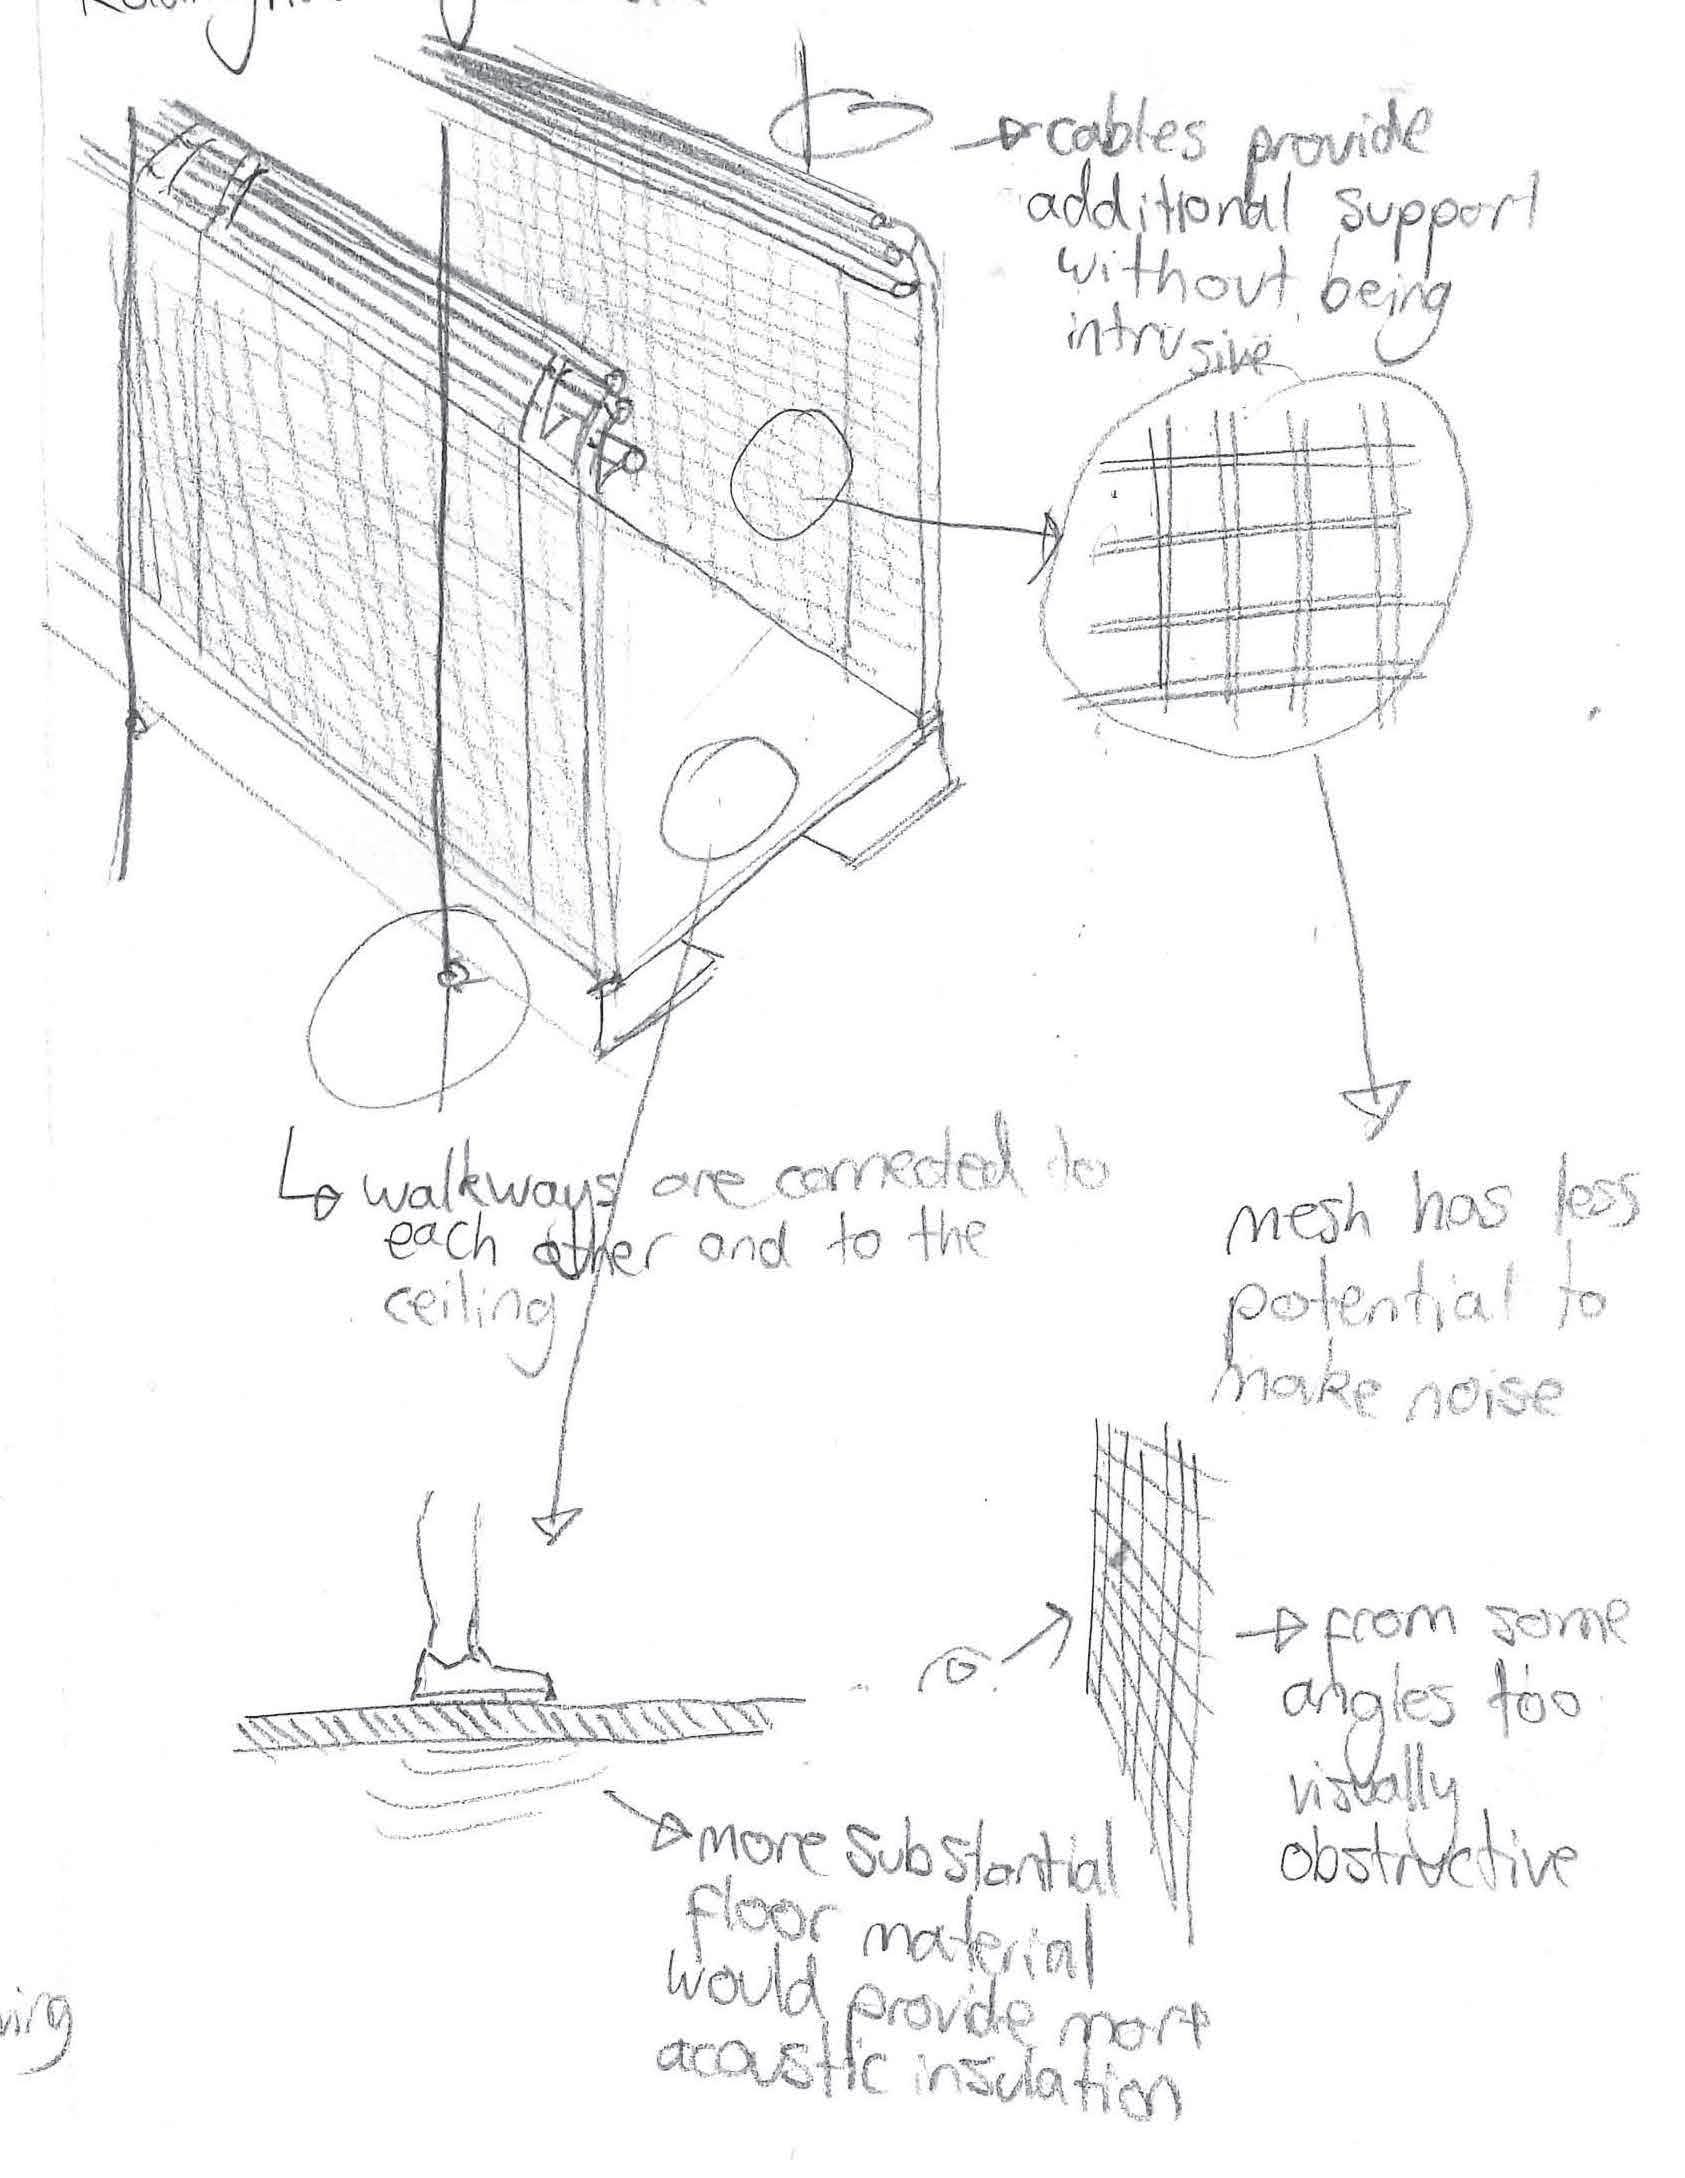 cables provide
additional support
without being
intrusive
walkways are connected to
each other and to the
ceiling
mesh has less
potential to
make noise
from some
angles too
visually
obstructive
more substantial
floor material
would provide more
acoustic insulation